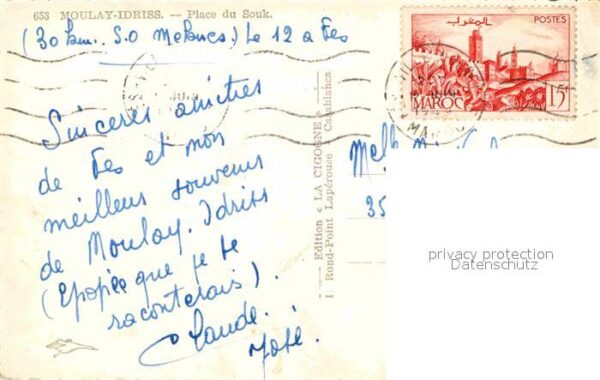 653 MOULAY-IDRISS. — Place du Souk.
(30 km. S.O Meknes) Le 12 a Fes
Sinceres amitiés
de Fes et mon
meilleur souvenir
de Moulay. Idriss
(Epopée que je te
raconterais).
Claude.
José.
Edition « LA CIGOGNE »
1 Rond-Point Lapérouse - Casablanca
المغرب
POSTES
MAROC
15F
Melle
35
privacy protection
Datenschutz